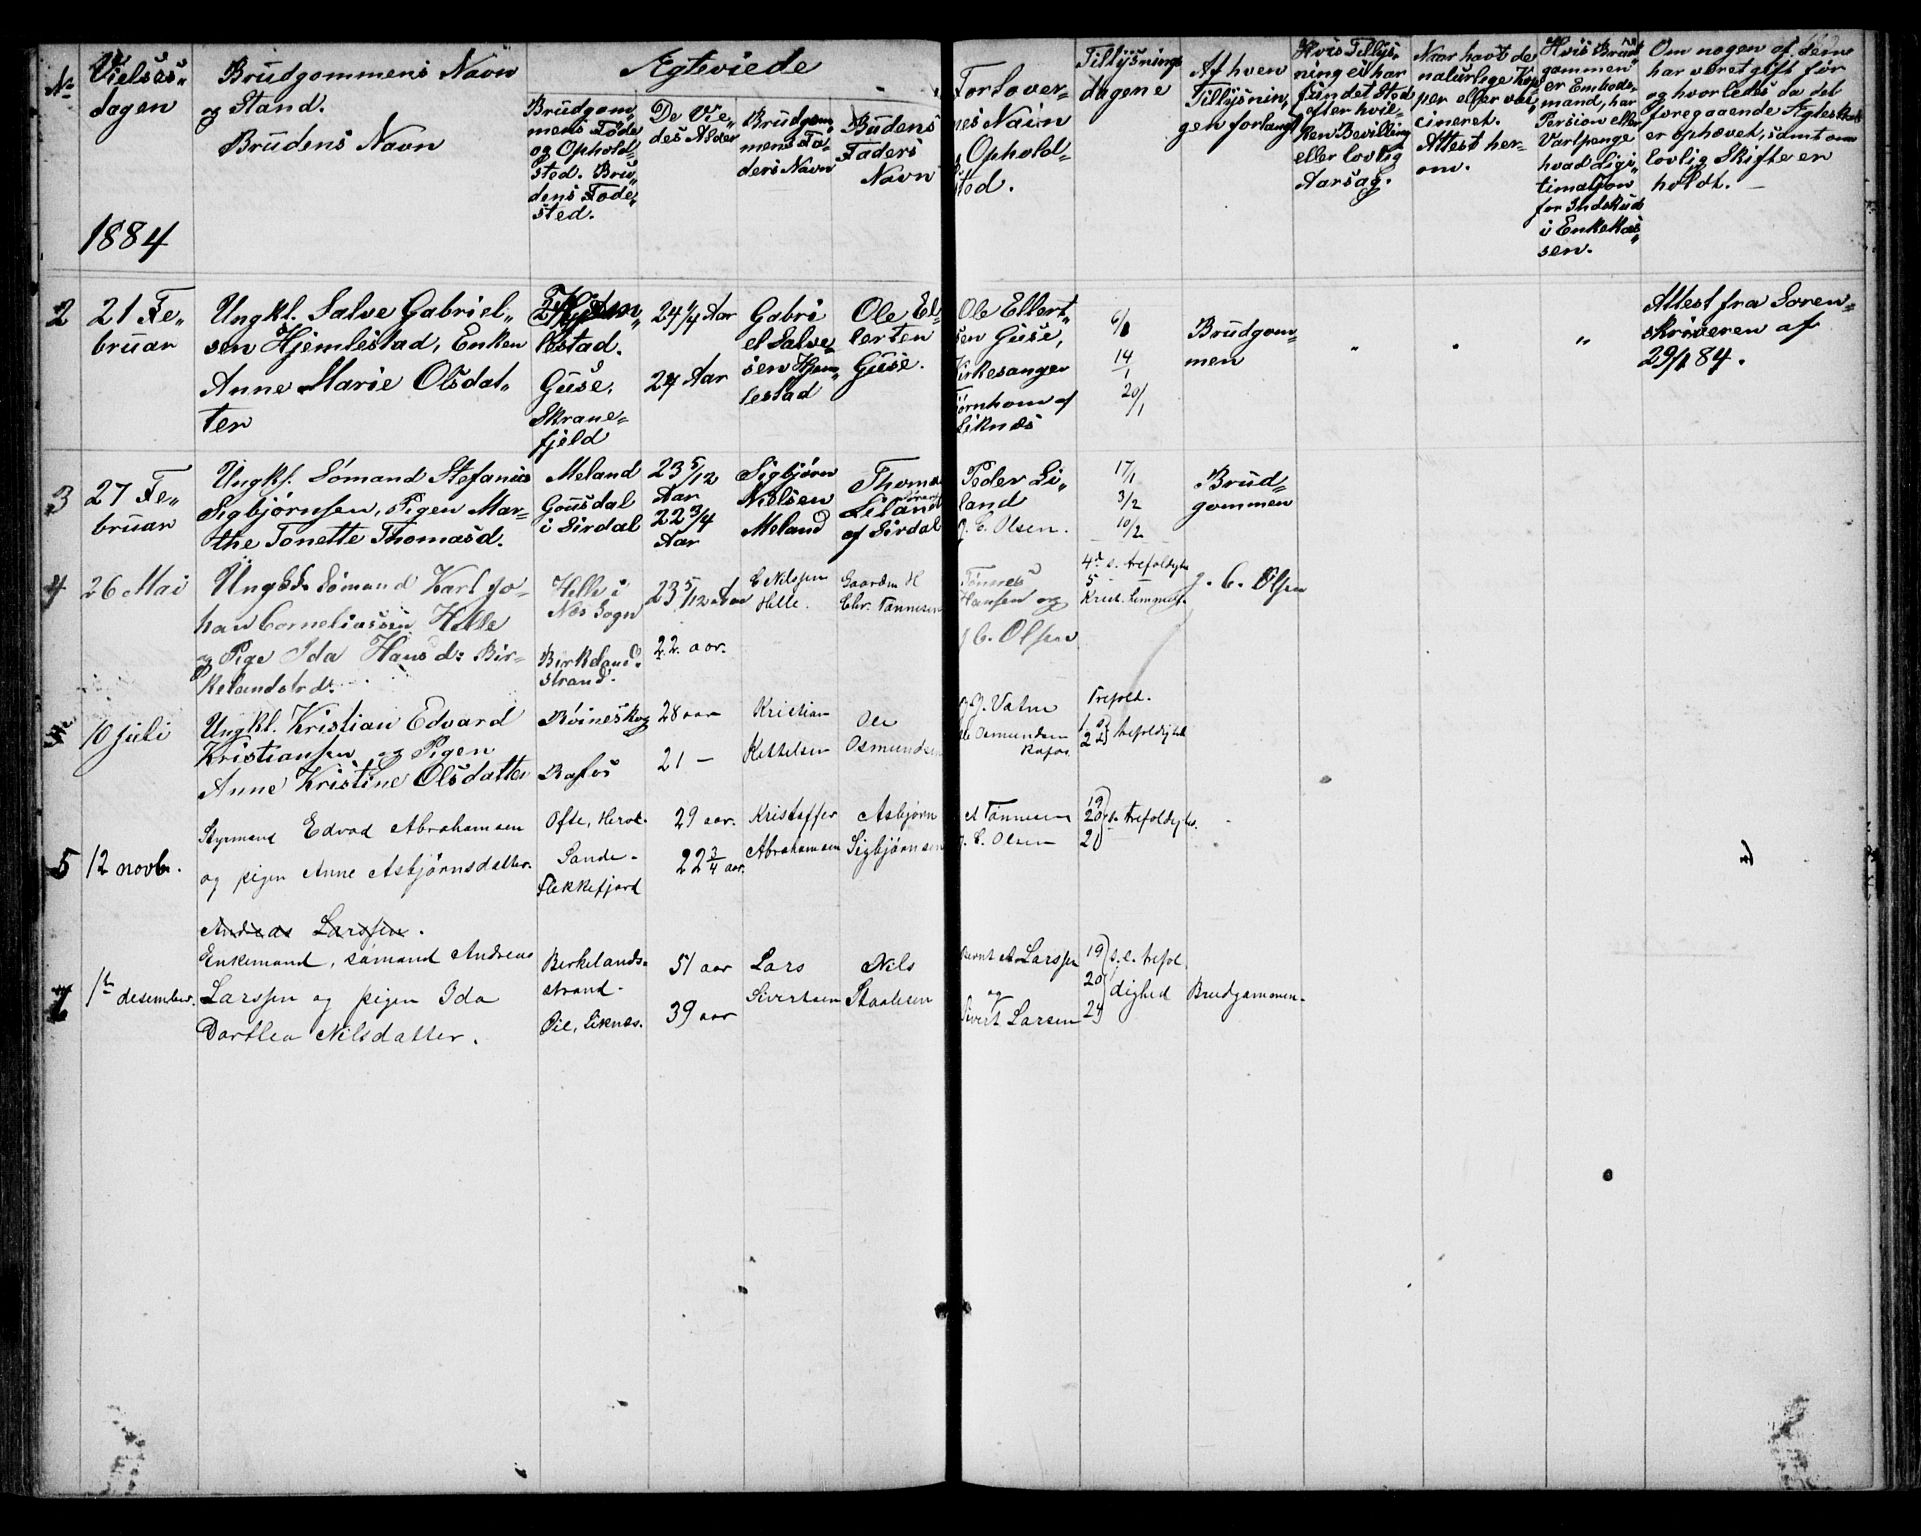 No
Vielses-
dagen
1884
Brudgommens Navn
og Stand.
Brudens Navn
Ægteviede
Brudgom,
mens Føde
og Ophold-
sted. Bru-
dens Føde,
sted.
De Vie,
des Alder
Brudgom,
mens Fa-
ders Navn
Brudens
Faders
Navn
Forlover-
nes Navn
Ophold-
sted.
Tillysnings
dagene
Af hvem
Tillysnin,
gen forlangt
Hvis Tillys,
ning ei har
fundet Sted
efter hvil-
ken Bevilling
eller lovlig
Aarsag.
Naar havt de
naturlige Kop
per eller vac
cineret.
Attest her-
om.
Hvis Brud
gommen
er Embeds-
mand, har
Pension eller
Vartpenge
hvad Ligi-
timation
for Indskud
i Enkekas
sen.
Om nogen af dem
har været gift før
og hvorledes da det
foregaaende Ægteskab
er ophævet, samt om
lovlig Skifte er
holdt. -
2
21 Fe-
bruar
Ungkl. Salve Gabriel-
sen Hjemlestad, Enken
Anne Marie Olsdat-
ter
lestad.
Guse,
Skrane-
fjeld
24 1/4 Aar
24 Aar
Gabri
el Salve-
sen Hjem-
lestad
Ole El-
lertsen
Guse.
Ole Ellert-
sen Guse,
Kirkesanger
Tjørnhom af
Liknes
6/1
14/1
20/1
Brudgom-
men
"
"
"
Attest fra Soren-
skriveren af
29/1 84.
3
27 Fe-
bruar
Ungkl. Sømand Stefanius
Sigbjørnsen, Pigen Mar-
the Tonette Thomasd.
Meland
Gousdal
i Sirdal
23 5/12
Aar
22 3/4
Aar
Sigbjørn
Nielsen
Meland
Thomas
Liland
af Sirdal
Peder Li-
land
J. C. Olsen.
17/1
3/2
10/2
Brud-
gommen
4
26 Mai
Ungkl. Sømand Karl Jo-
han Corneliussen Helle
og Pige Ida Hansd: Bir-
kelandstrd:
Helle i
Nes Sogn
Birkelands-
strand.
23 5/12 Aar
22 aar.
C Nilsen
Helle.
Gaardm H
Chr. Tønnesen
Tønnes
Hansen og
J C. Olsen
4de s. trefoldighe
5 -
Krist. himmelf.
J. C. Olsen
10 juli
Ungkl. Kristian Edvard
Kristiansen og Pigen
Anne Kristine Olsdatter
Røineskog
Rafos
28 aar
21 -
Kristian
Kettelsen
Ole
Osmundsen
J. Vatne
Ole Osmundsen
Rafos.
Trefold.
1
2 trefoldighed
5
12 novb.
Styrmand Edvad Abrahamsen
og pigen Anne Asbjørnsdatter.
Ofte, Herod.
Sande-
Flekkefjord
29 aar.
22 3/4 aar.
Kristoffer
Abrahamsen
Asbjørn
Sigbjørnsen
A Tønnesen
J. C. Olsen
19
20 s. trefoldighe.
21
Andreas Larssen.
7
1te desember.
Enkemand, sømand Andreas
Larssen og pigen Ida
Dorthea Nilsdatter.
Birkelands-
strand-
Øie, Liknes.
51 aar
39 aar
Lars
Sivertsen
Nils
Staalesen
Bernt A Larssen
og
Sivert Larsen
19
20
21
s. e. trefol
dighed
Brudgommen.